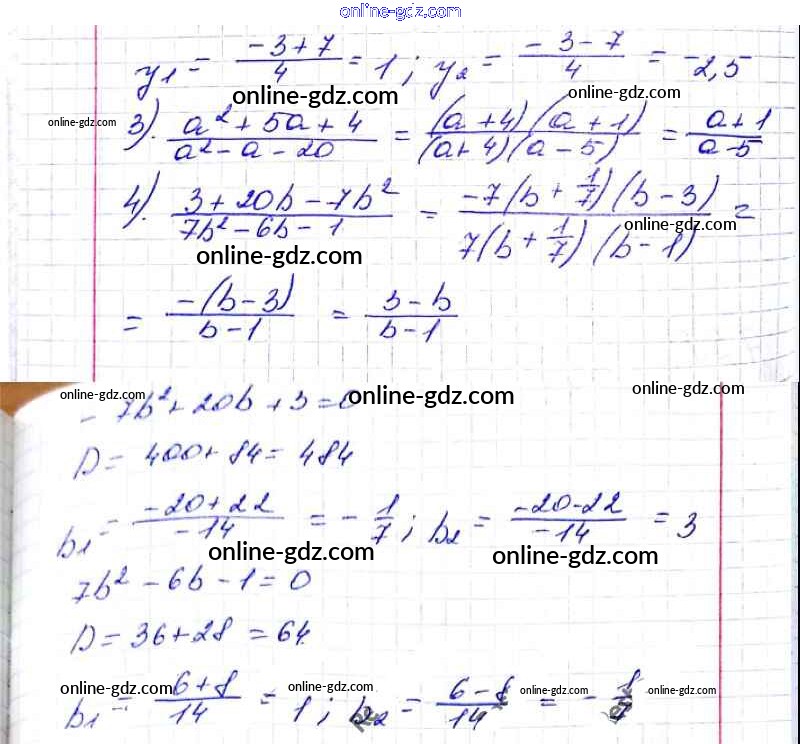 online-gdz.com
y₁ = (-3+7)/4 = 1; y₂ = (-3-7)/4 = -2,5
online-gdz.com online-gdz.com
online-gdz.com
3). (a²+5a+4)/(a²-a-20) = ((a+4)(a+1))/((a+4)(a-5)) = (a+1)/(a-5)
4). (3+20b-7b²)/(7b²-6b-1) = (-7(b+1/7)(b-3))/(7(b+1/7)(b-1)) =
online-gdz.com
online-gdz.com
= (-(b-3))/(b-1) = (3-b)/(b-1)
online-gdz.com online-gdz.com online-gdz.com
-7b²+20b+3=0
D=400+84=484
b₁ = (-20+22)/(-14) = -1/7; b₂ = (-20-22)/(-14) = 3
online-gdz.com online-gdz.com
7b²-6b-1=0
D=36+28=64
b₁ = (6+8)/14 = 1; b₂ = (6-8)/14 = -1/7
online-gdz.com online-gdz.com online-gdz.com online-gdz.com